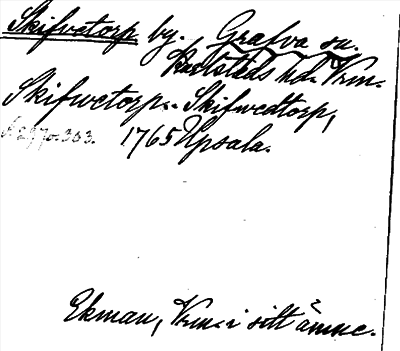 Skifvetorp by. Grafva sn.
Karlstads hd. Vrm.
Skifwetorp. Skifwedtorp,
1765 Upsala.
Ekman, Vrm. i sitt ämne.